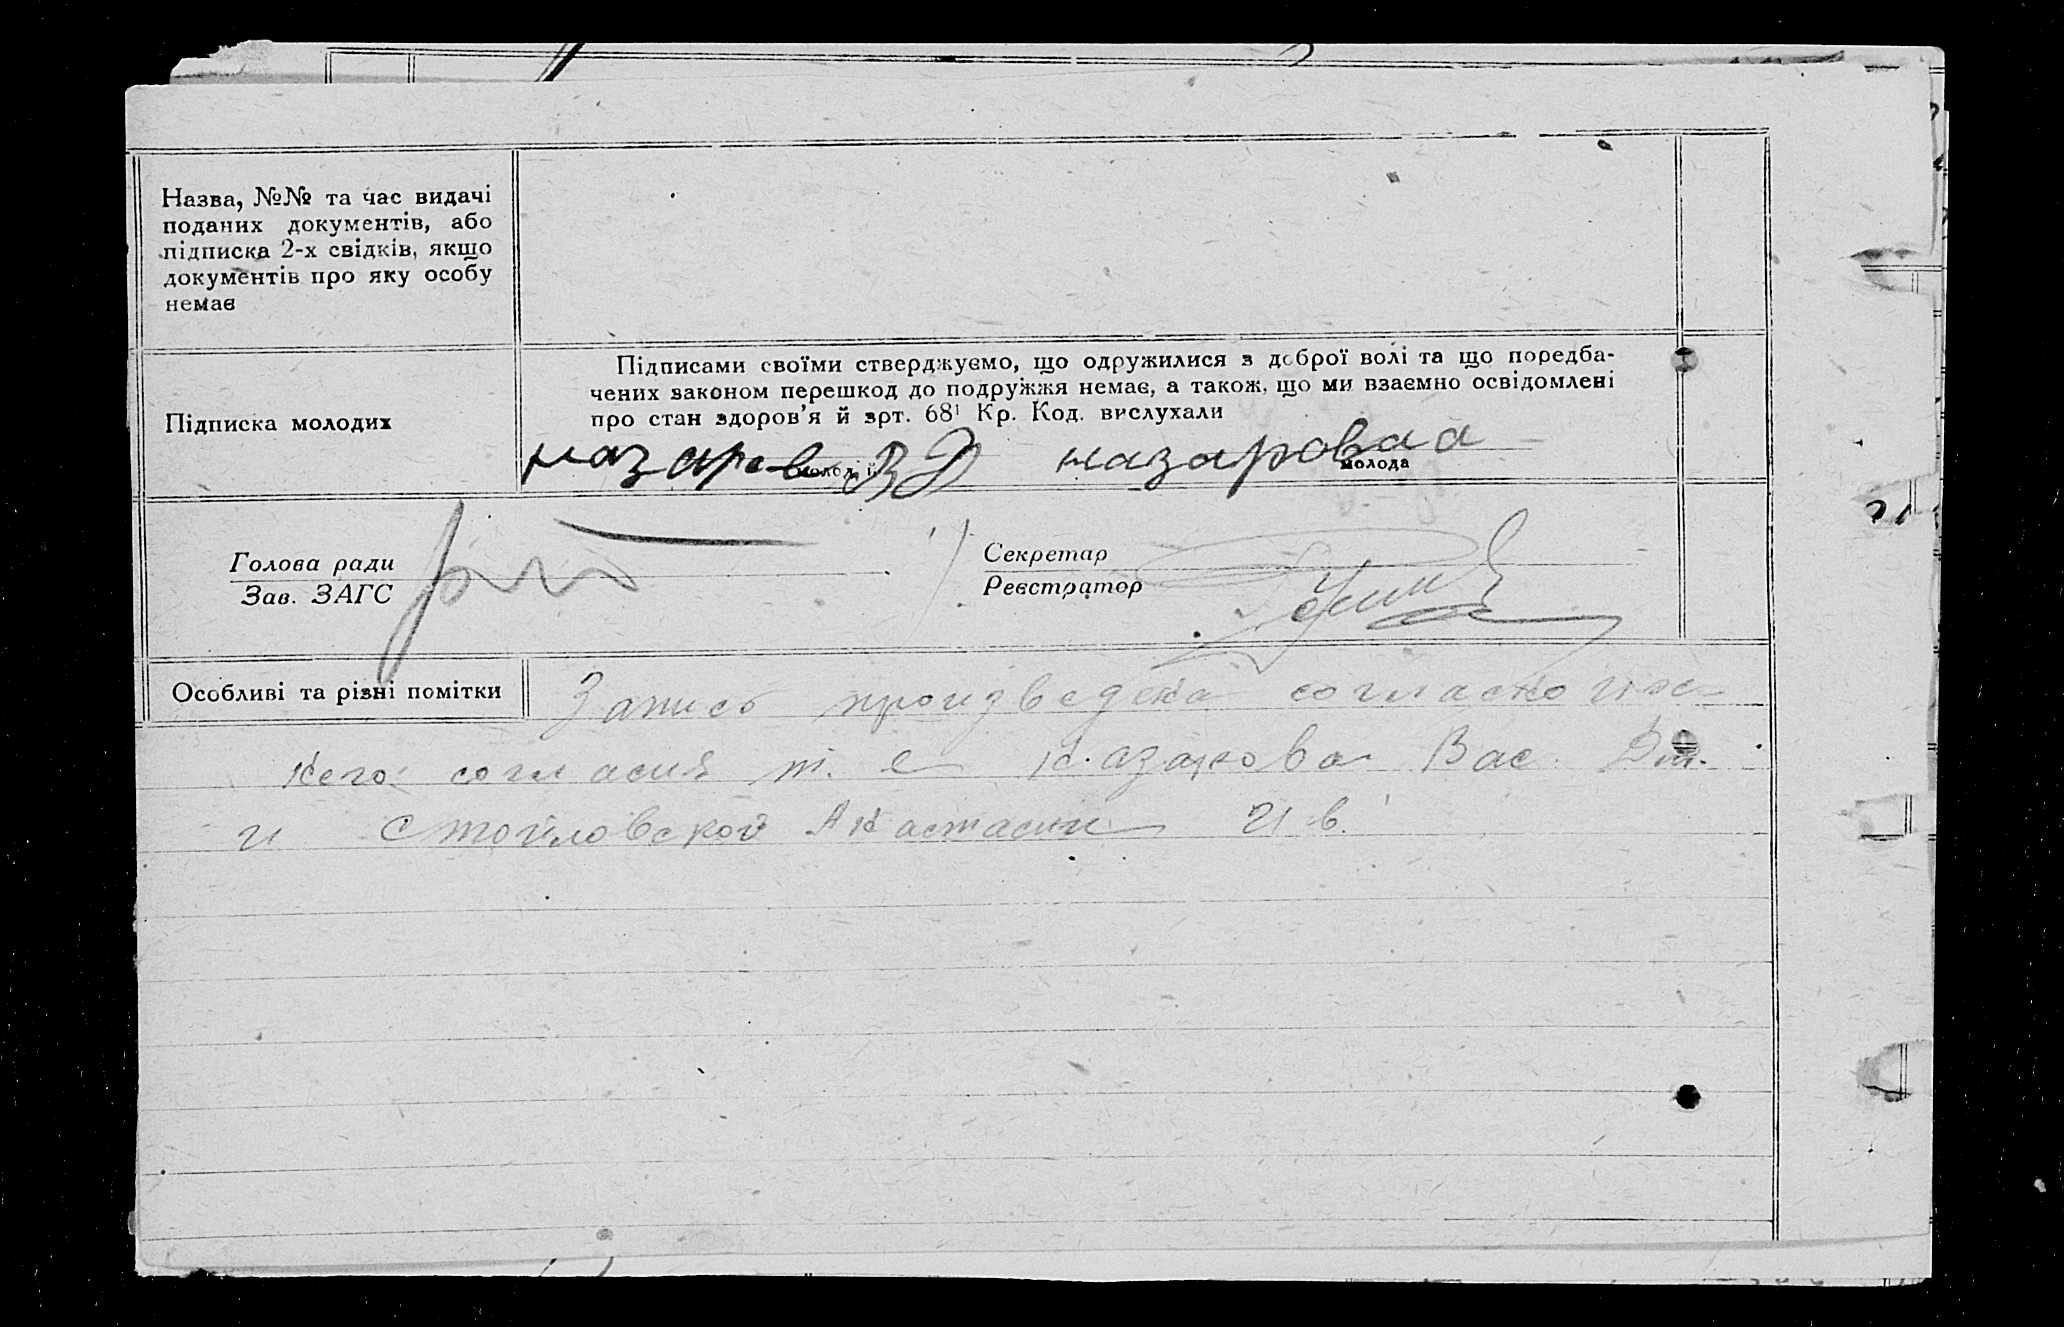 Назва, №№ та час видачі
поданих документів, або
підписка 2-х свідків, якщо
документів про яку особу
немає
Підписка молодих
Підписами своїми стверджуємо, що одружилися з доброї волі та що поредба-
чених законом перешкод до подружжя немає, а також, що ми взаємно освідомлені
про стан здоров'я й зрт. 68¹ Кр. Код. вислухали
назаров ВД назарова а
молодий молода
Голова ради
Зав. ЗАГС
Секретар
Реєстратор
Особливі та різні помітки
Запись произведена согласно
согласия т. е Назарова Вас. Дм.
и Стойловской Анастасии Ив.